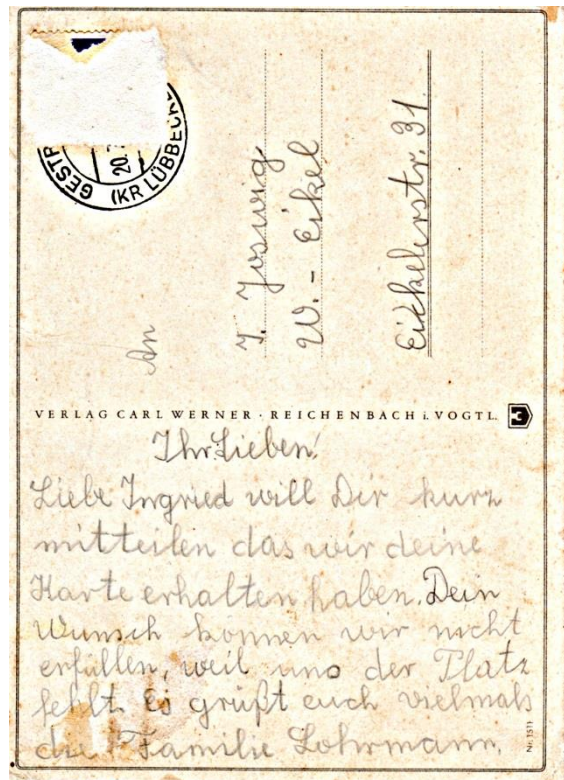 GESTR
20.
(KR LÜBBECKE
An
J. Joswig
W. - Eikel
Eickelerstr. 31
VERLAG CARL WERNER · REICHENBACH i. VOGTL.
Ihr Lieben!
Liebe Ingried will Dir kurz
mitteilen das wir deine
Karte erhalten haben. Dein
Wunsch können wir nicht
erfüllen, weil uns der Platz
fehlt. Es grüßt euch vielmals
die Familie Lohrmann.
Nr. 1511